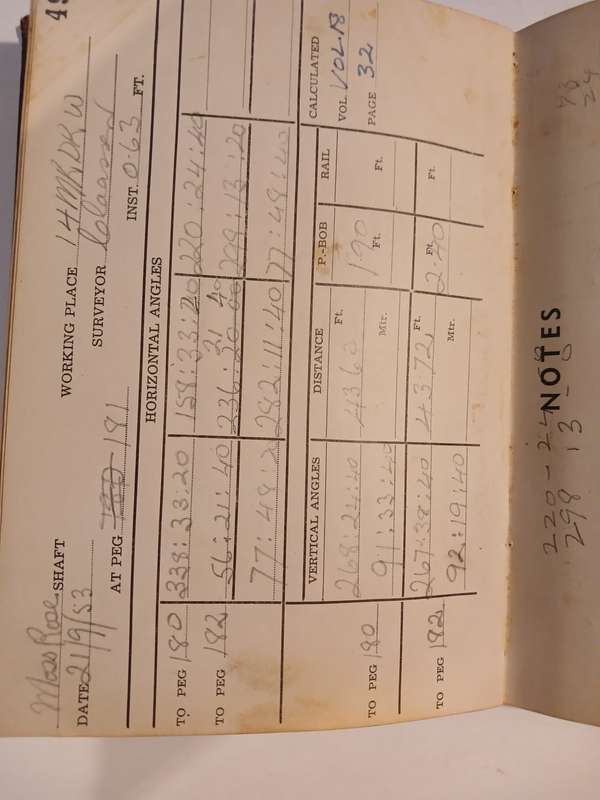 49
Moss Rose SHAFT WORKING PLACE 14 MR DR W
DATE 21/9/53 SURVEYOR
AT PEG 180 181 INST. 0.63 FT.
HORIZONTAL ANGLES
TO PEG 180 338:33:20 158:33:20 220:24:40
TO PEG 182 56:21:40 236:21 40 :13:20
77:48:20 282:11:40 77:48:40
VERTICAL ANGLES DISTANCE P.-BOB RAIL CALCULATED
TO PEG 180 268:24:40 4360 Ft. 1.90 Ft. Ft. VOL. VOL. 18
91:33:40 Mtr. PAGE 32
TO PEG 182 267:38:40 4372 Ft. 2.40 Ft. Ft.
92:19:40 Mtr.
NOTES
220 - 24
298 13 - 0
78
24